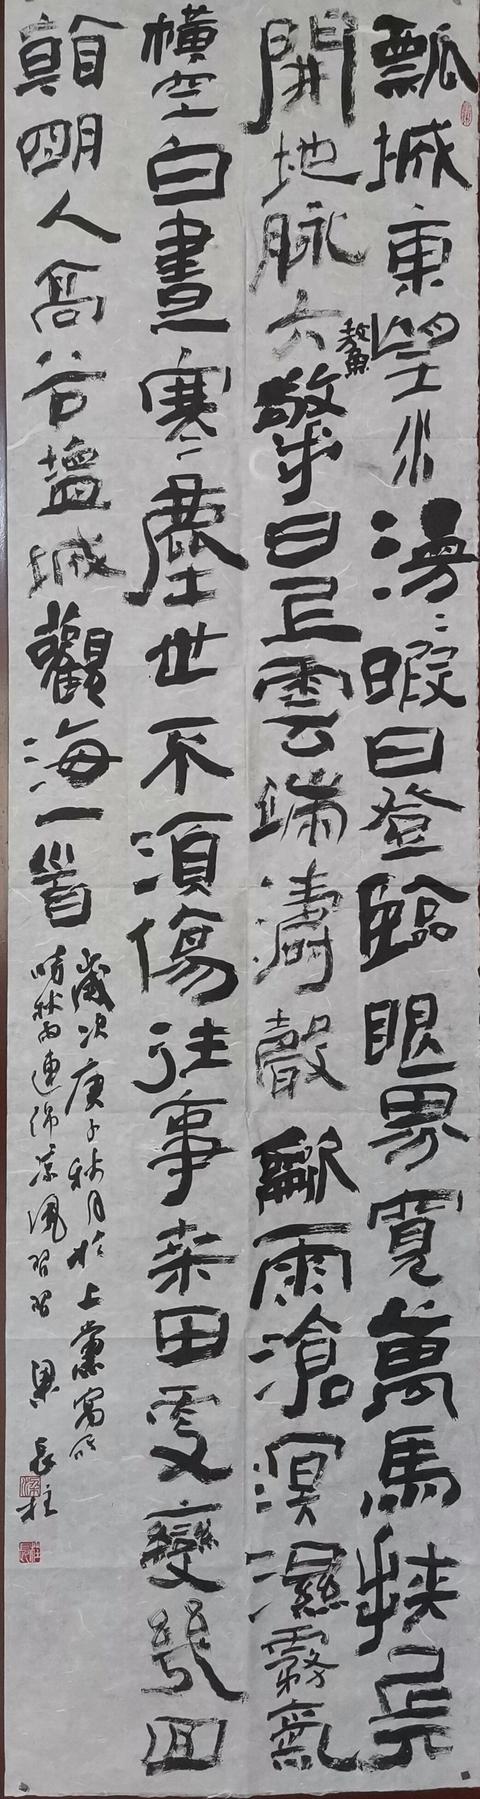 瓢城東望水漫漫暇日登臨眼界寬萬馬挾兵
開地脉六鰲擎日上雲端濤聲歕雨滄溟濕霧氣
橫空白晝寒塵世不須傷往事桒田更變幾回
顛明人高谷鹽城觀海一首
歲次庚子秋月於上黨寫
時秋雨連綿涼風習習 梁長柱